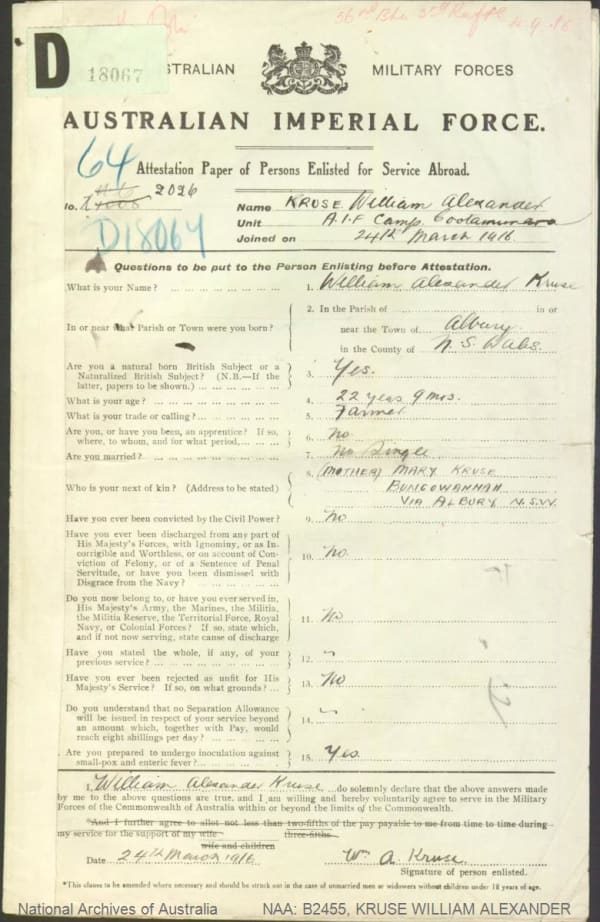 56th Btn 5th Reftn 4.9.16
D 18067
STRALIAN MILITARY FORCES
AUSTRALIAN IMPERIAL FORCE.
64
Attestation Paper of Persons Enlisted for Service Abroad.
No. 2026
D18067
Name KRUSE William Alexander
Unit A.I.F Camp. Cootamundra
Joined on 24th March 1916
Questions to be put to the Person Enlisting before Attestation.
What is your Name? 1. William Alexander Kruse
In or near what Parish or Town were you born? 2. In the Parish of in or
near the Town of Albury
in the County of N.S. Wales.
Are you a natural born British Subject or a
Naturalized British Subject? (N.B.—If the 3. Yes.
latter, papers to be shown.)
What is your age? 4. 22 years 9 mos.
What is your trade or calling? 5. Farmer
Are you, or have you been, an apprentice? If so, 6. No
where, to whom, and for what period,
Are you married? 7. No Single
Who is your next of kin? (Address to be stated) 8. (MOTHER) MARY KRUSE
BUNGOWANNAH
VIA ALBURY N.S.W.
Have you ever been convicted by the Civil Power? 9. No
Have you ever been discharged from any part of
His Majesty's Forces, with Ignominy, or as In-
corrigible and Worthless, or on account of Con-
viction of Felony, or of a Sentence of Penal 10. No.
Servitude, or have you been dismissed with
Disgrace from the Navy?
Do you now belong to, or have you ever served in,
His Majesty's Army, the Marines, the Militia,
the Militia Reserve, the Territorial Force, Royal 11. No
Navy, or Colonial Forces? If so, state which,
and if not now serving, state cause of discharge
Have you stated the whole, if any, of your 12.
previous service?
Have you ever been rejected as unfit for His 13. No
Majesty's Service? If so, on what grounds?
Do you understand that no Separation Allowance
will be issued in respect of your service beyond 14.
an amount which, together with Pay, would
reach eight shillings per day?
Are you prepared to undergo inoculation against 15. Yes.
small-pox and enteric fever?
I, William Alexander Kruse do solemnly declare that the above answers made
by me to the above questions are true, and I am willing and hereby voluntarily agree to serve in the Military
Forces of the Commonwealth of Australia within or beyond the limits of the Commonwealth.
*And I further agree to allot not less than two-fifths of the pay payable to me from time to time during
three-fifths
my service for the support of my wife
wife and children
Date 24th March 1916 Wm A Kruse.
Signature of person enlisted.
*This clause to be amended where necessary and should be struck out in the case of unmarried men or widowers without children under 18 years of age.
National Archives of Australia NAA: B2455, KRUSE WILLIAM ALEXANDER